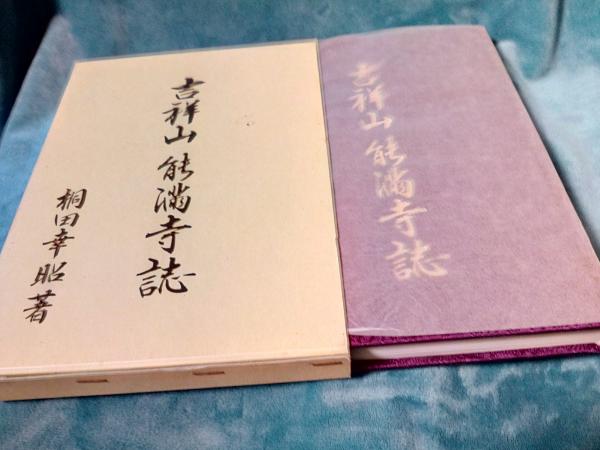 吉祥山 能満寺誌
桐田幸昭著
吉祥山 能満寺誌